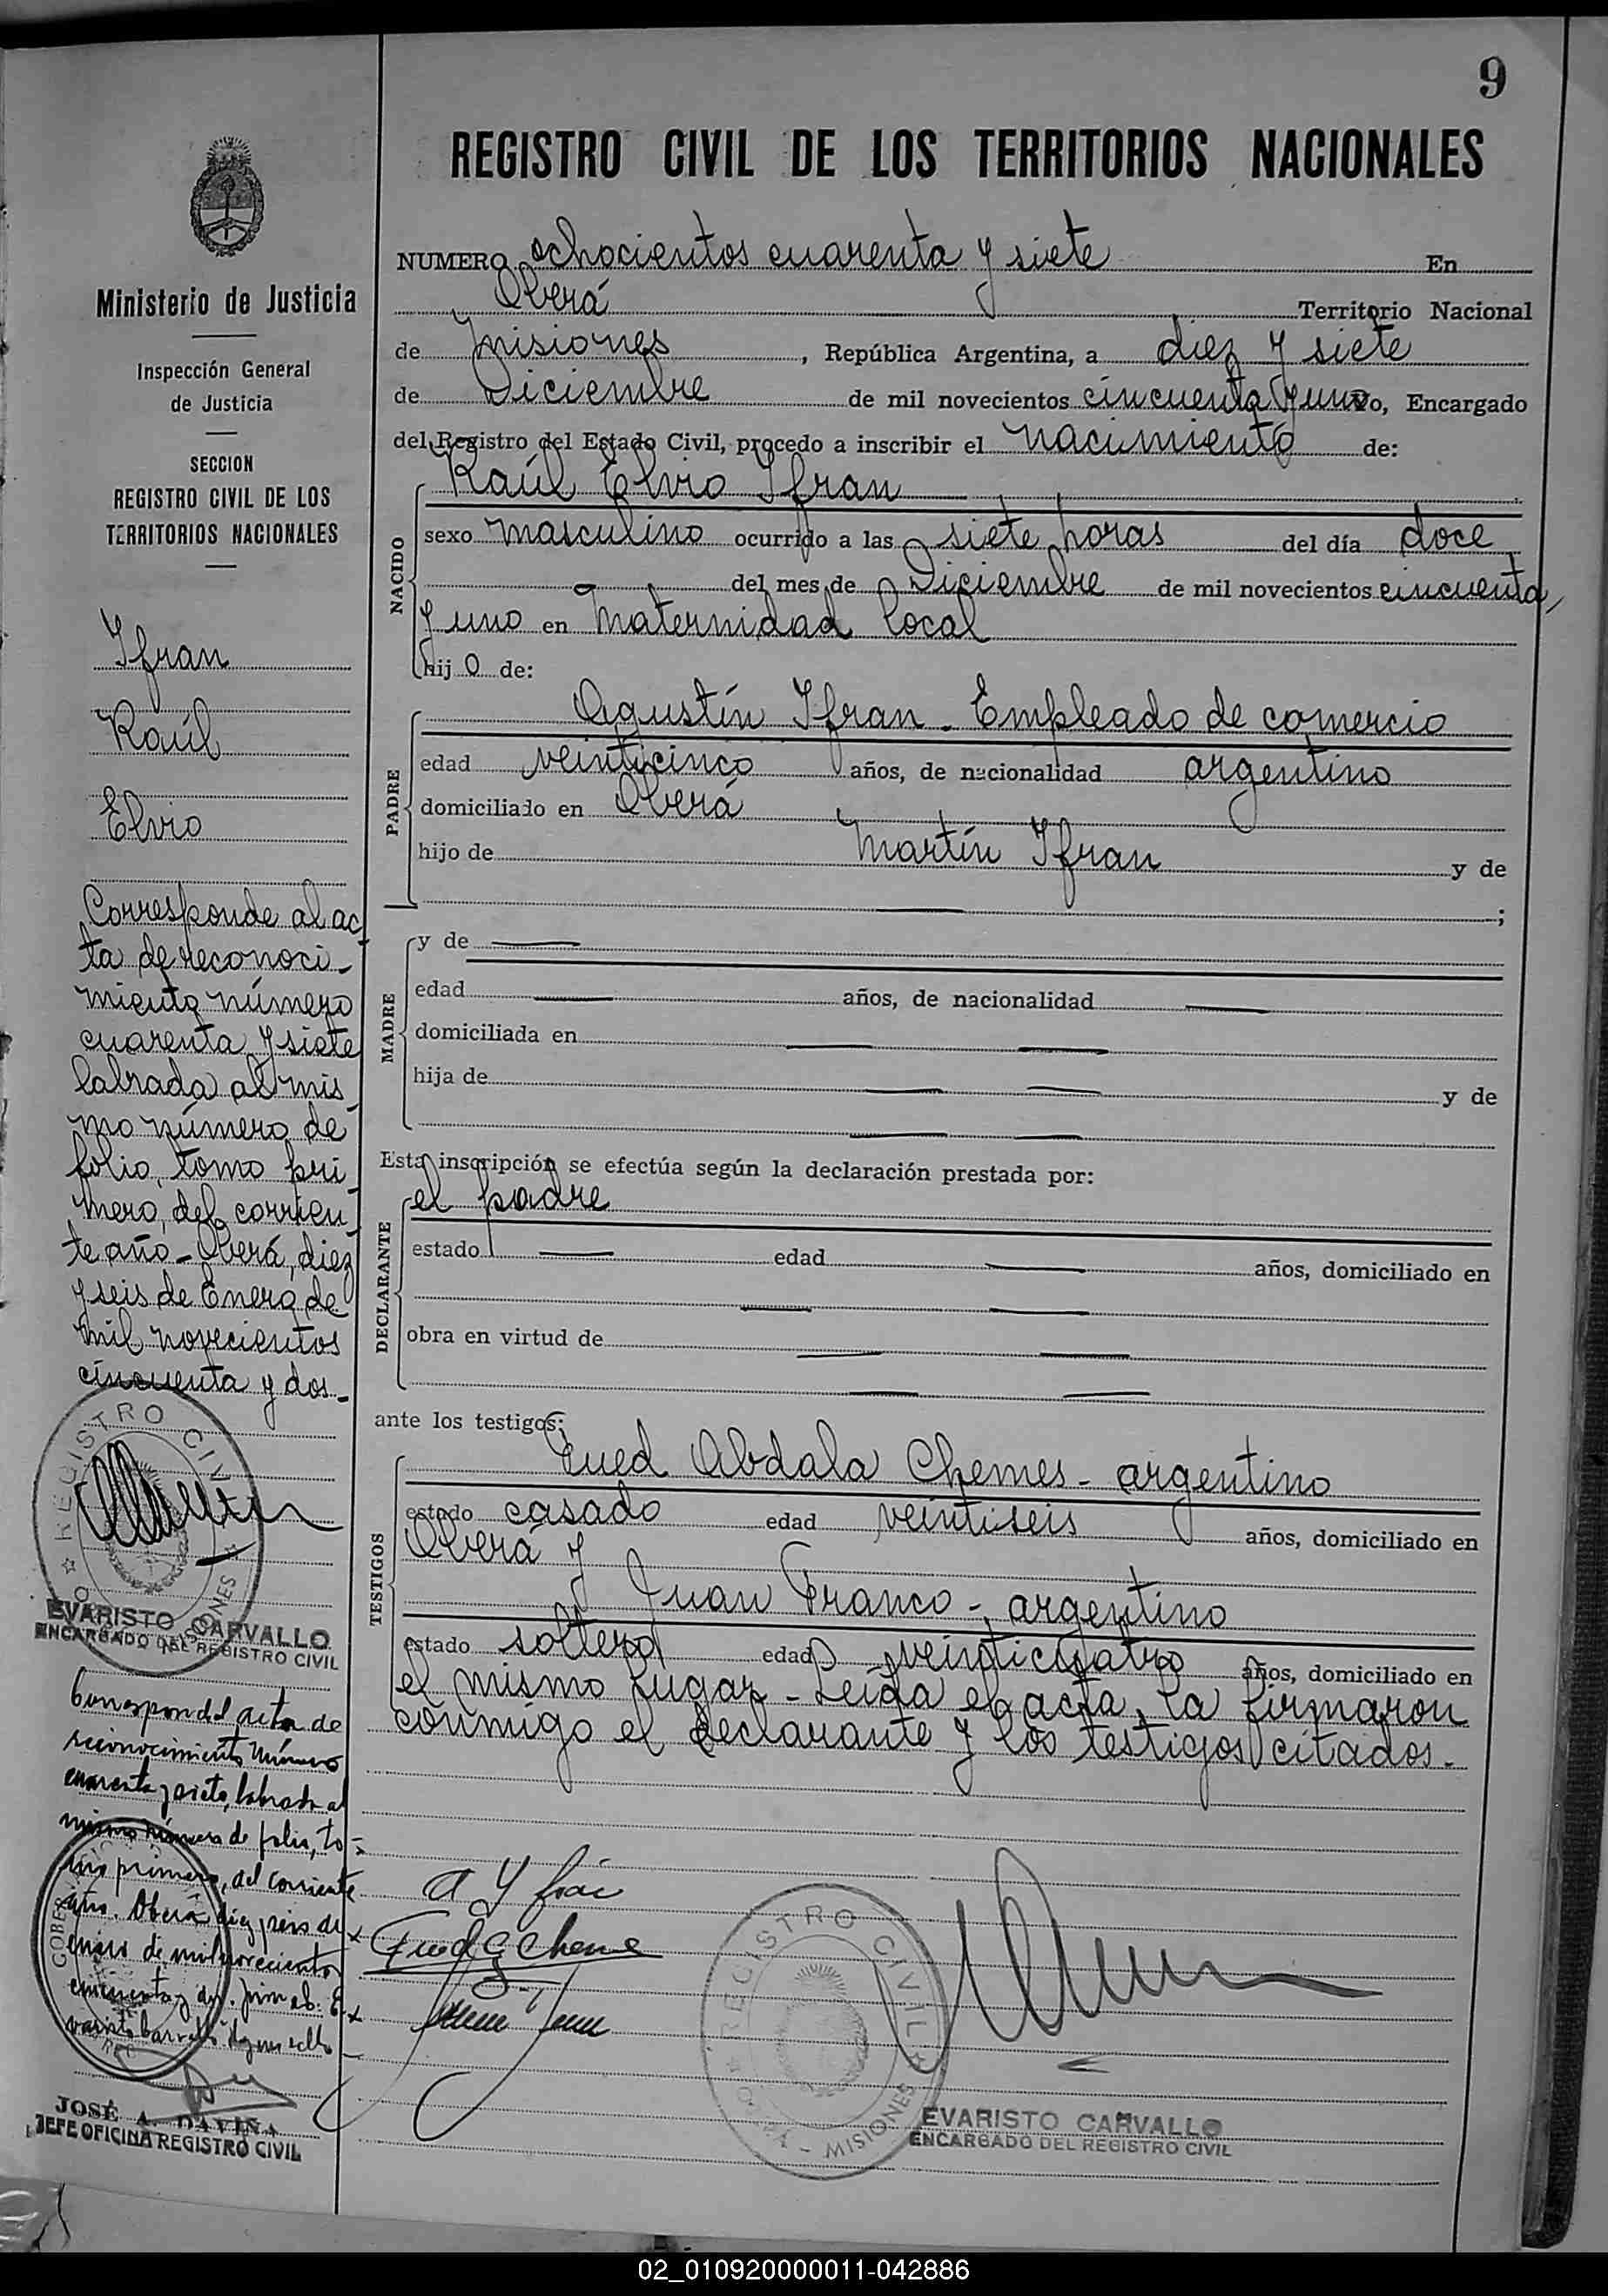 9
REGISTRO CIVIL DE LOS TERRITORIOS NACIONALES
Ministerio de Justicia
Inspección General
de Justicia
SECCION
REGISTRO CIVIL DE LOS
TERRITORIOS NACIONALES
Ifran
Raúl
Elvio
Corresponde al ac
ta de reconoci-
miento número
cuarenta y siete
labrada al mis
mo número de
folio, tomo pri
mero, del corrien
te año - Oberá, diez
y seis de Enero de
mil novecientos
cincuenta y dos -
REGISTRO CIVIL
EVARISTO CARVALLO
ENCARGADO DEL REGISTRO CIVIL
Corresponde l acta de
reconocimiento número
cuarenta y siete, labrada al
mismo número de folio, to-
mo primero, del corriente
año. Oberá diez y seis de
enero de mil novecientos
cincuenta y dos. Firmado: E-
varisto Carvallo
JOSÉ A. DAVIÑA
JEFE OFICINA REGISTRO CIVIL
NUMERO ochocientos cuarenta y siete En
Oberá Territorio Nacional
de Misiones, República Argentina, a diez y siete
de Diciembre de mil novecientos cincuenta y uno Yo, Encargado
del Registro del Estado Civil, procedo a inscribir el nacimiento de:
NACIDO
Raúl Elvio Ifran
sexo masculino ocurrido a las siete horas del día doce
del mes de Diciembre de mil novecientos cincuenta
y uno en Maternidad local
hijo de:
PADRE
Agustín Ifran - Empleado de comercio
edad veinticinco años, de nacionalidad argentino
domiciliado en Oberá
hijo de Martín Ifran y de
;
MADRE
y de
edad años, de nacionalidad
domiciliada en
hija de y de
Esta inscripción se efectúa según la declaración prestada por:
DECLARANTE
el padre
estado edad años, domiciliado en
obra en virtud de
ante los testigos:
TESTIGOS
Eued Abdala Chemes - argentino
estado casado edad veintiseis años, domiciliado en
Oberá y
Juan Franco - argentino
estado soltero edad veinticuatro años, domiciliado en
el mismo lugar - Leída el acta, la firmaron
conmigo el declarante y los testigos citados.
REGISTRO CIVIL
MISIONES
EVARISTO CARVALLO
ENCARGADO DEL REGISTRO CIVIL
02_010920000011-042886